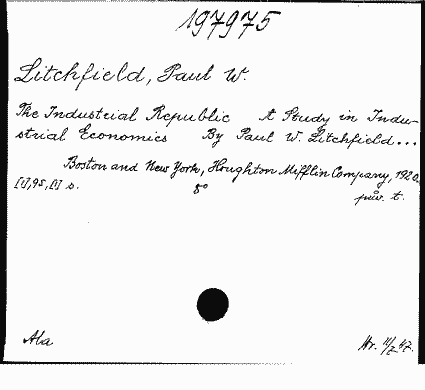 197975
Litchfield, Paul W.
The Industrial Republic A Study in Indu-
strial Economics By Paul W. Litchfield...
Boston and New York, Houghton Mifflin Company, 1920.
[1],95,[1] s. 8°
t.
Ala